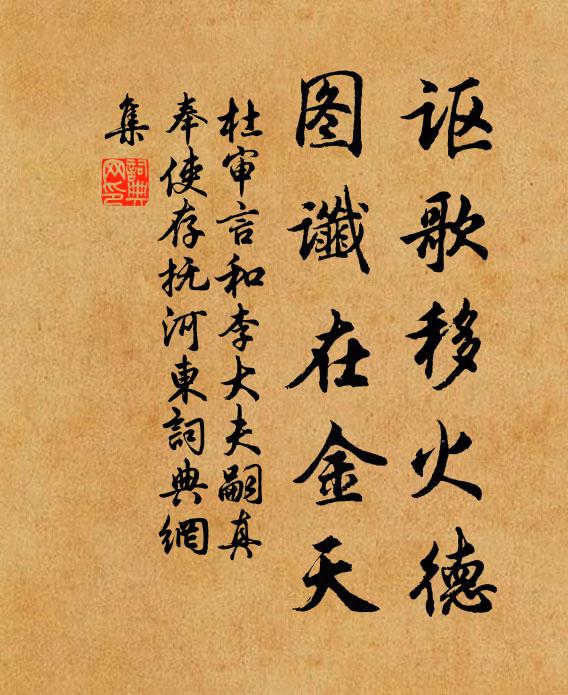 讴歌移火德
图谶在金天
杜审言和李大夫嗣真
奉使存抚河東詞典網
集
詞典网印